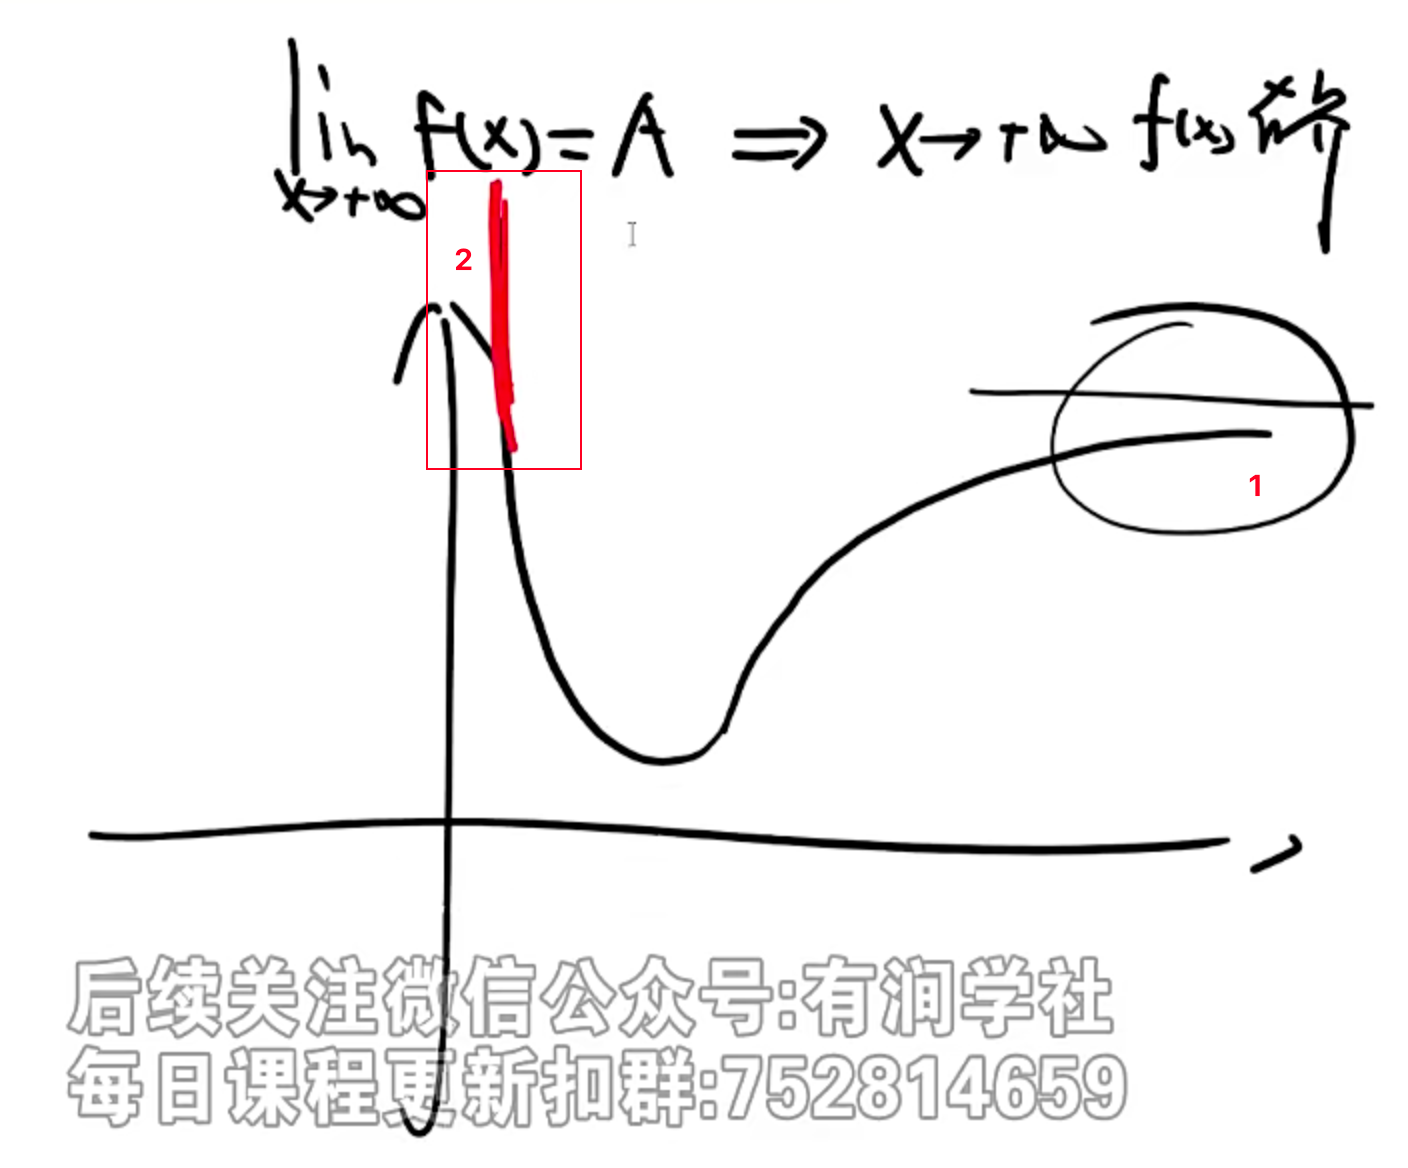 lim f(x) = A ⇒ x→+∞ f(x)
x→+∞
2
1
后续关注微信公众号:有润学社
每日课程更新扣群:752814659